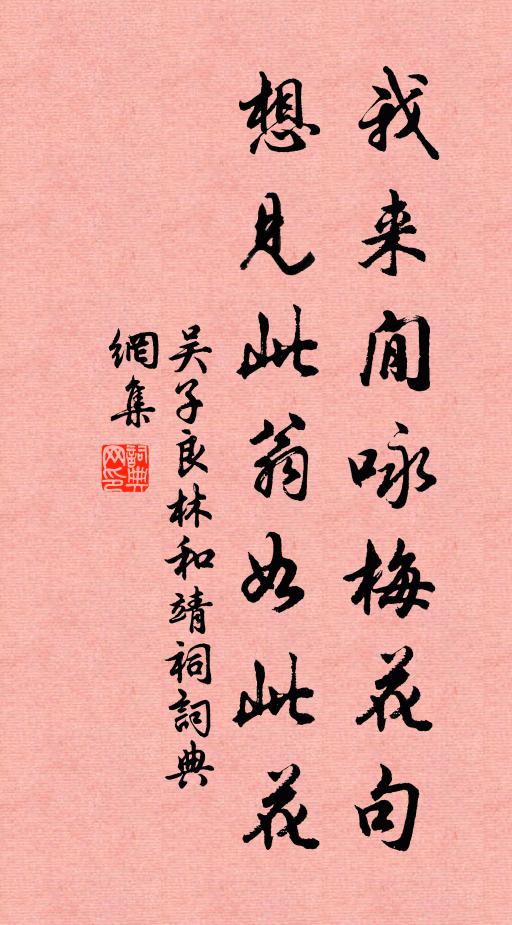 我来閒咏梅花句
想見此翁如此花
吴子良林和靖祠詞典
網集
詞典
网印